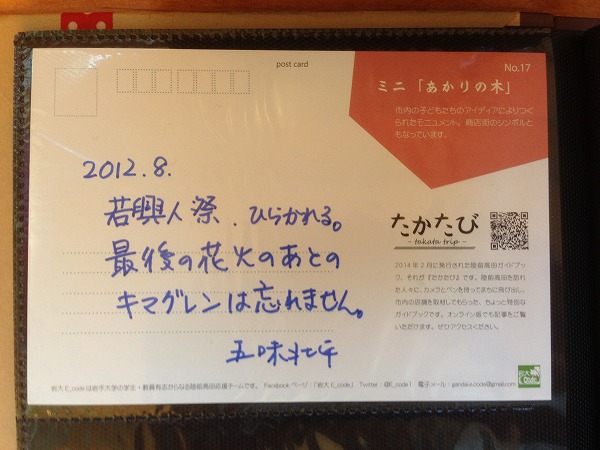 post card
No.17
ミニ「あかりの木」
市内の子どもたちのアイディアによりつく
られたモニュメント。商店街のシンボルと
もなっています。
2012.8.
若興人祭、ひらかれる。
最後の花火のあとの
キマグレンは忘れません。
五味壮平
たかたび
- takata trip -
2014年2月に発行された陸前高田ガイドブッ
ク、それが『たかたび』です。陸前高田を訪れ
た人々に、カメラとペンを持ってまちに飛び出し、
市内の店舗を取材してもらった、ちょっと特別な
ガイドブックです。オンライン版でも記事をご覧
いただけます。ぜひアクセスください。
岩大E_codeは岩手大学の学生・教員有志からなる陸前高田応援チームです。 Facebookページ：「岩大E_code」 Twitter：@E_code1 電子メール：gandai.e.code@gmail.com
岩大
E_code